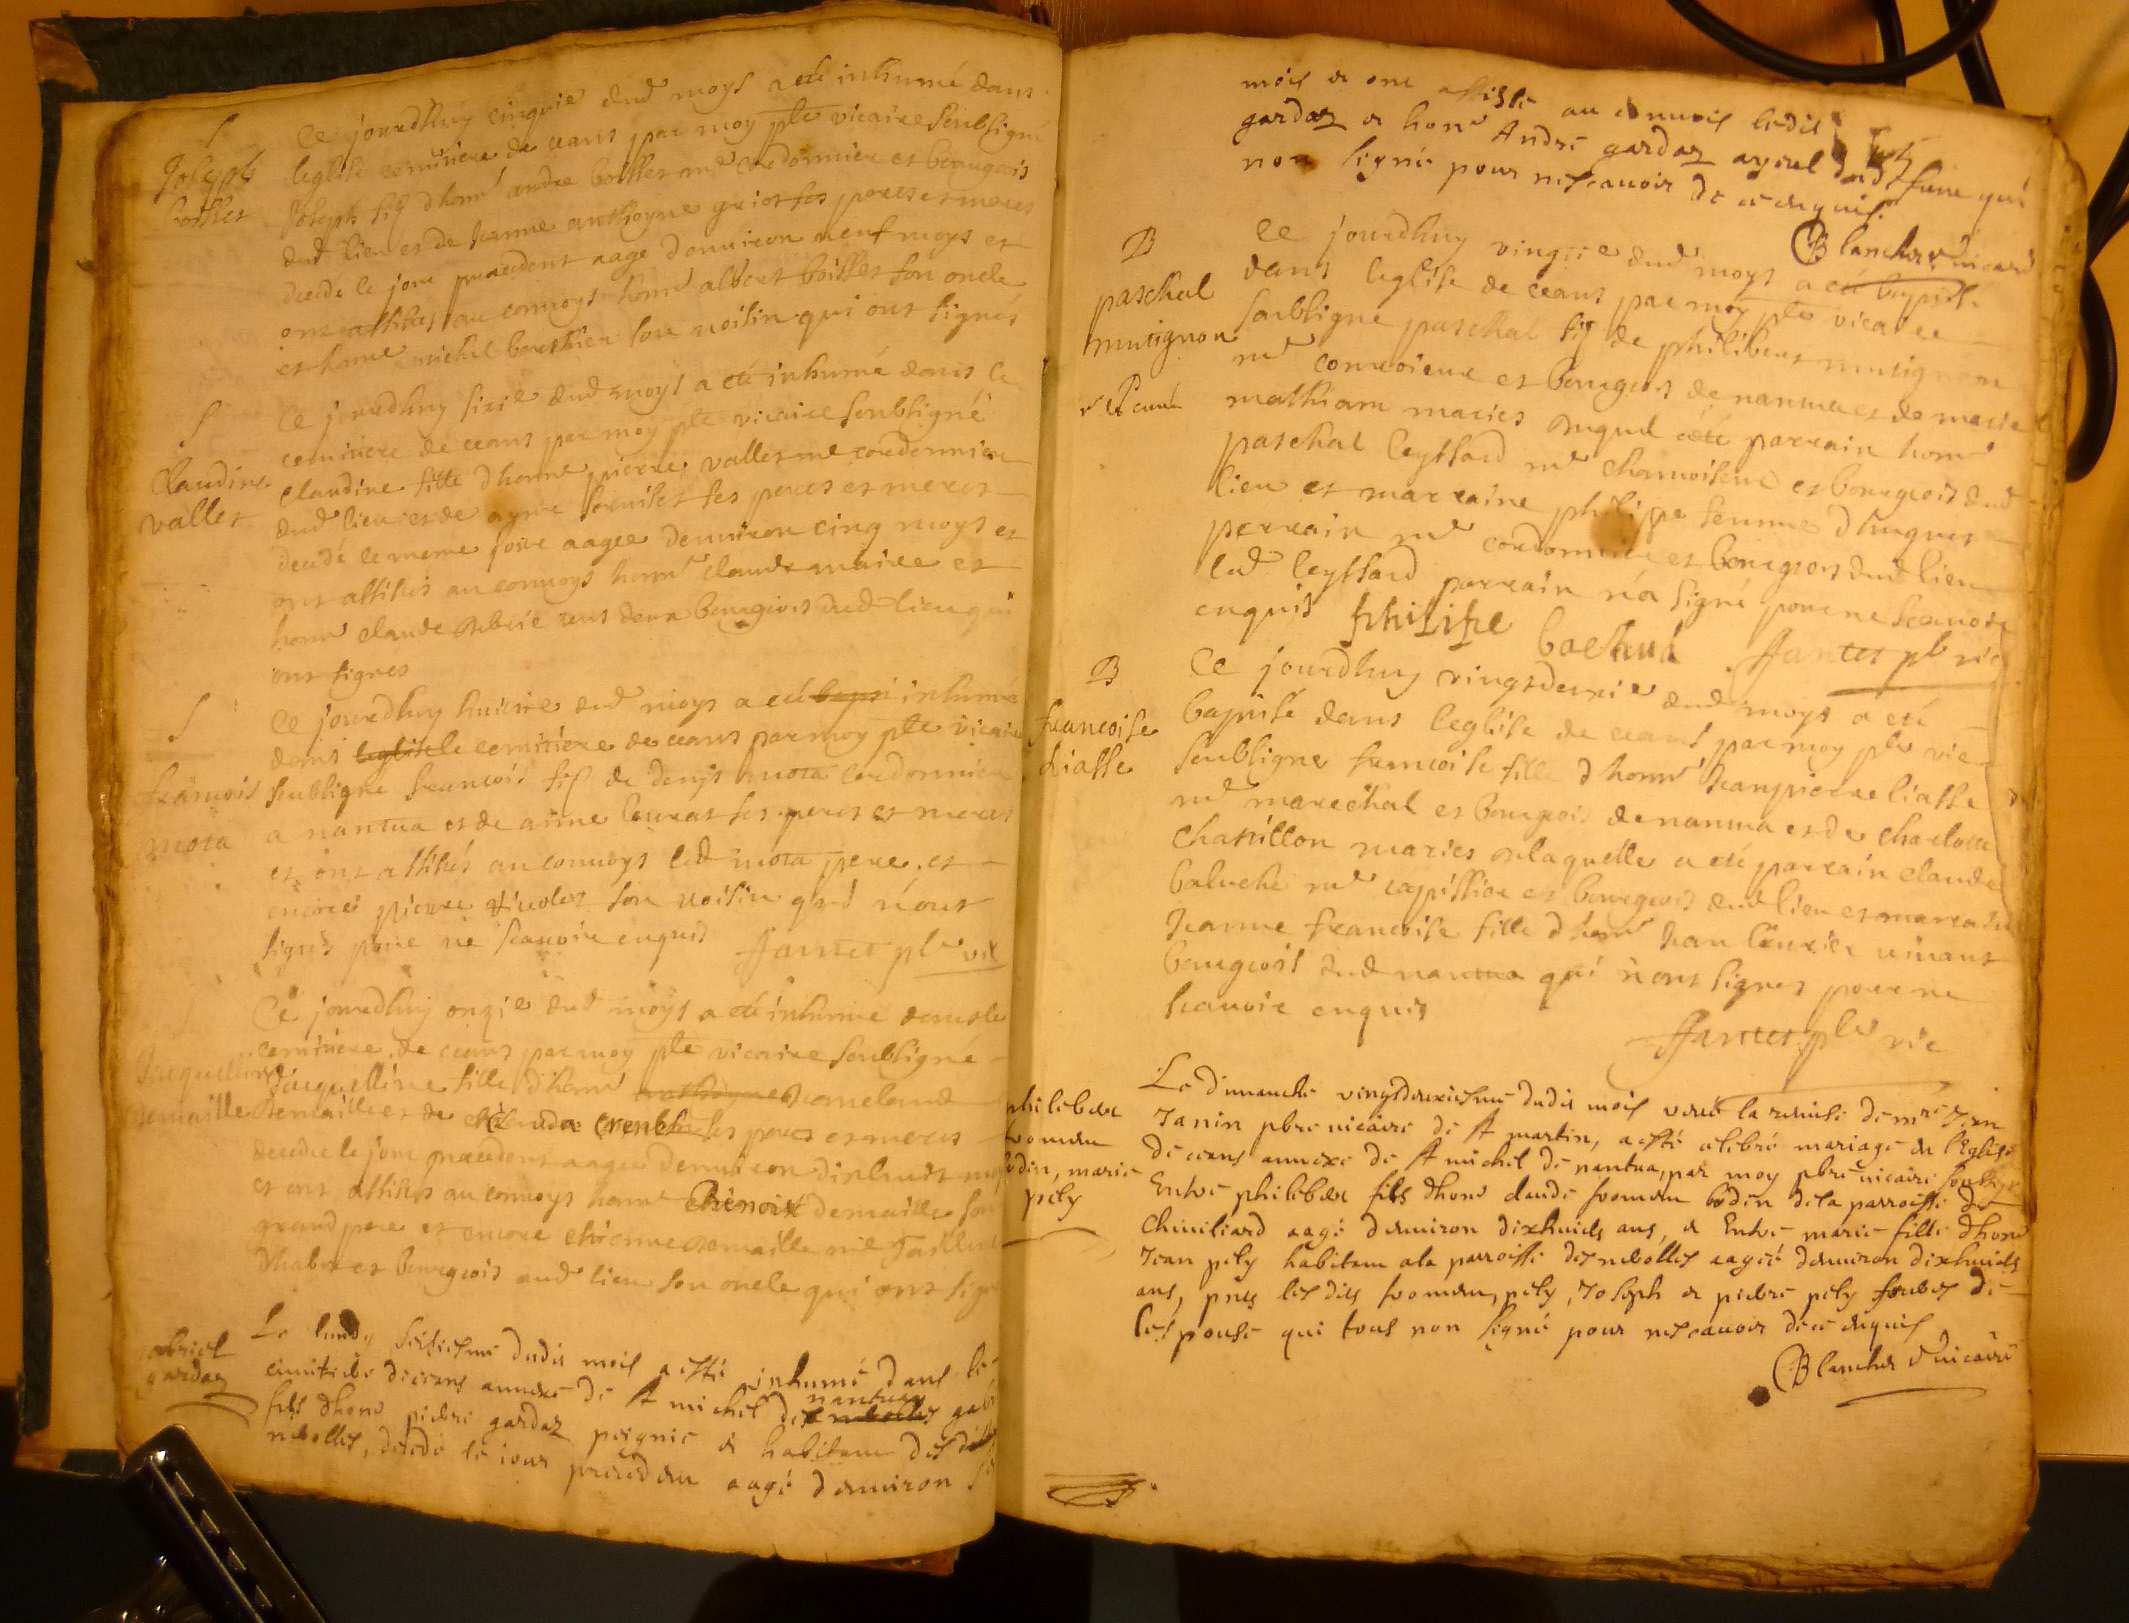 S
Joseph
boisset
Ce jourdhuy cinquie dud moys a eté inhumé dans
leglise cemitiere de ceans par moy pbre vicaire soubsigné
Joseph fis dhonr andre boisset mre cordonnier et bourgeois
dud lieu et de Jeanne anthoyne griot ses peres et meres
decedé le jour precedent aage denviron neuf moys et
ont assistes au convoys honr albert boisset son oncle
et honr michel bouthier son voisin qui ont signés
S
Claudine
vallet
Ce jourdhuy sixie dud moys a eté inhumé dans le
cemitiere de ceans par moy pbre vicaire soubsigné
claudine fille dhonr pierre vallet mre cordonnier
dud lieu et de ses peres et meres
decedé le meme jour aagee denviron cinq moys et
ont assistés au convoys honr claude maire et
honr claude tous deux bourgeois dud lieu qui
ont signes
S
francois
mota
Ce jourdhuy huitie dud moys a eté bapti inhumé
dans leglise le cemitiere de ceans par moy pbre vicaire
soubsigne francois fis de denys mota cordonnier
a nantua et de anne ses peres et meres
et ont assistés au convoys led mota pere et
encores pierre son voisin qui n'ont
signés pour ne scavoir enquis Jantet pbre vic
Jacqueline
demaille
Ce jourdhuy onzie dud moys a eté inhumé dans le
cemitiere de ceans par moy pbre vicaire soubsigné
Jacquelline fille dhonr claude
demaille et de clauda ses peres et meres
decedee le jour precedent aagee denviron dixhuit moys
et ont assistés au convoys honr benoist demaille son
grand pere et encore etienne demaille mre tailleur
dhabit et bourgeois dud lieu son oncle qui ont signé
gabriel
gardaz
Le lundy seiziesme dudit mois a esté inhumé dans le
cimitiere de ceans annexe de st michel de nantua
fils dhonr pierre gardaz peigneur et habitant des
nebolles, decedé le iour precedent aagé denviron
mois et ont assisté au convois ledit
gardaz et honr André gardaz ayeul dud qui
non signé pour nescavoir de ce enquis.
Blanchet vicaire
B
paschal
mutignon
Ce jourdhuy vingtie dud moys a eté baptisé
dans leglise de ceans par moy pbre vicaire
soubsigne paschal fis de philibert mutignon
mre conroieur et bourgeois de nantua et de marie
mathian maries duquel a eté parrain honr
paschal leyssard mre chamoiseur et bourgeois dud
lieu et marraine philippe femme dhugues
perrain mre cordonnier et bourgeois dud lieu
led leyssard parrain n'a signé pour ne scavoir
enquis philipe Jantet pbre vic
B
francoise
Liasse
Ce jourdhuy vingtdeuxie dud moys a eté
baptisé dans leglise de ceans par moy pbre vic
soubsigne francoise fille dhonr Jeanpierre liasse
mre marechal et bourgeois de nantua et de charlotte
chatillon maries de laquelle a eté parrain claude
baluche mre tapissier et bourgeois dud lieu et marraine
Jeanne francoise fille dhonr Jean vivant
bourgeois dud nantua qui n'ont signes pour ne
scavoir enquis
Jantet pbre vic
philibert
froment
bodin, marie
pely
Le dimanche vingtdeuxiesme dudit mois veue la remise de mre Jean
Janin pbre vicaire de st martin, a esté celebré mariage en l'Eglise
de ceans annexe de st michel de nantua, par moy pbre vicaire soubsigné
Entre philibert fils dhonr claude froment bodin de la parroisse de
Cheviliard aagé denviron dixhuict ans, et Entre marie fille dhonr
Jean pely habitant a la parroisse des nebolles aagée denviron dixhuict
ans, pnts lesdits froment, pely, Joseph et pierre pely freres de
lespouse qui tous non signé pour nescavoir dece enquis
Blanchet vicaire